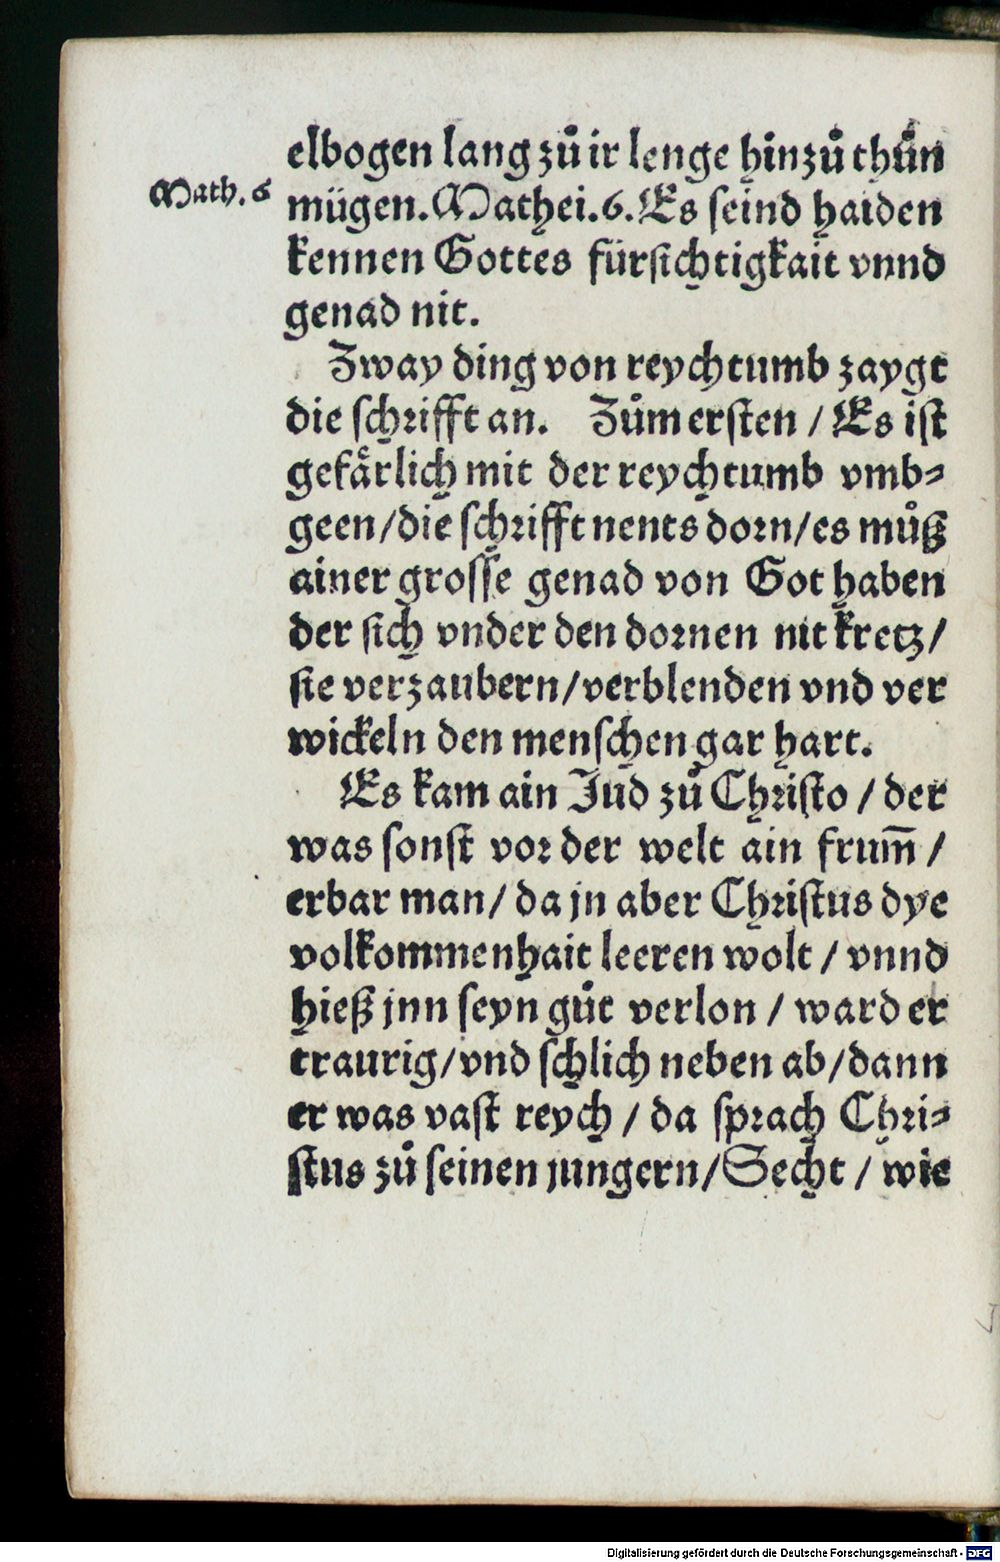 elbogen lang zů ir lenge hinzů thůn
Math. 6
mügen. Mathei. 6. Es seind haiden
kennen Gottes fürsichtigkait vnnd
genad nit.
Zway ding von reychtumb zaygt
die schrifft an. Zům ersten / Es ist
gefärlich mit der reychtumb vmb⸗
geen/die schrifft nents dorn/es můß
ainer grosse genad von Got haben
der sich vnder den dornen nit kretz/
sie verzaubern/verblenden vnd ver
wickeln den menschen gar hart.
Es kam ain Jud zů Christo / der
was sonst vor der welt ain frum̃ /
erbar man/ da jn aber Christus dye
volkommenhait leeren wolt / vnnd
hieß jnn seyn gůt verlon / ward er
traurig/vnd schlich neben ab/dann
er was vast reych / da sprach Chri⸗
stus zů seinen jungern/Secht / wie
Digitalisierung gefördert durch die Deutsche Forschungsgemeinschaft - DFG